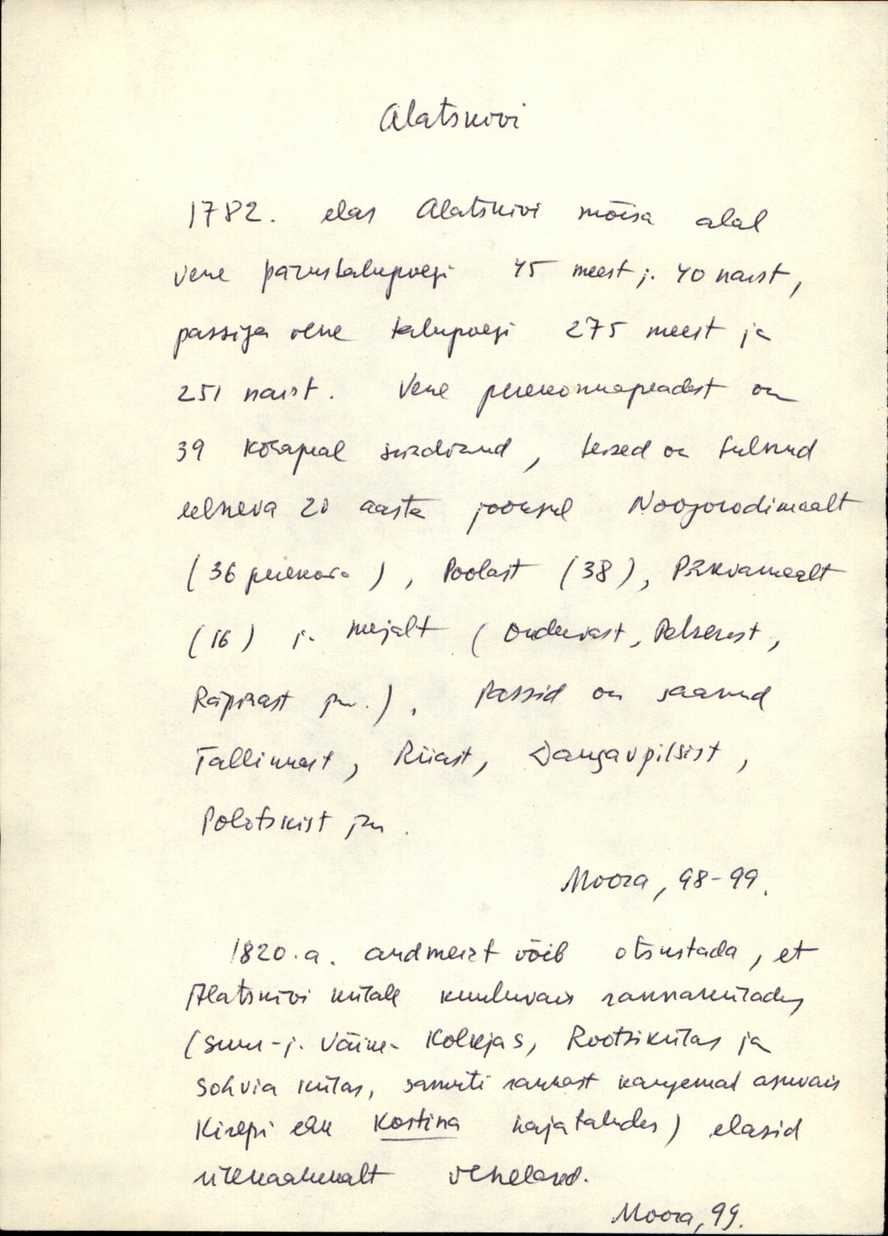 Alatskivi
1782. elas Alatskivi mõisa alal
vene päristalupoegi 45 meest j. 40 naist,
passiga vene talupoegi 275 meest ja
251 naist. Vene perekonnapeadest on
39 kohapeal sündinud, teised on tulnud
eelneva 20 aasta jooksul Novgorodimaalt
(36 perekonda), Poolast (38), Pihkvamaalt
(16) j. mujalt (Oudovast, Petserist,
Räpinast jm.). Passid on saanud
Tallinnast, Riiast, Daugavpilsist,
Polotskist jm.
Moora, 98-99.
1820.a. andmeist võib otsustada, et
Alatskivi külale kuuluvais rannakülades
(Suur-j. Väike- Kolkjas, Rootsikülas ja
Sohvia külas, samuti rannast kaugemal asuvais
Kirepi ehk Kostina hajataludes) elasid
ülekaalukalt venelased.
Moora, 99.